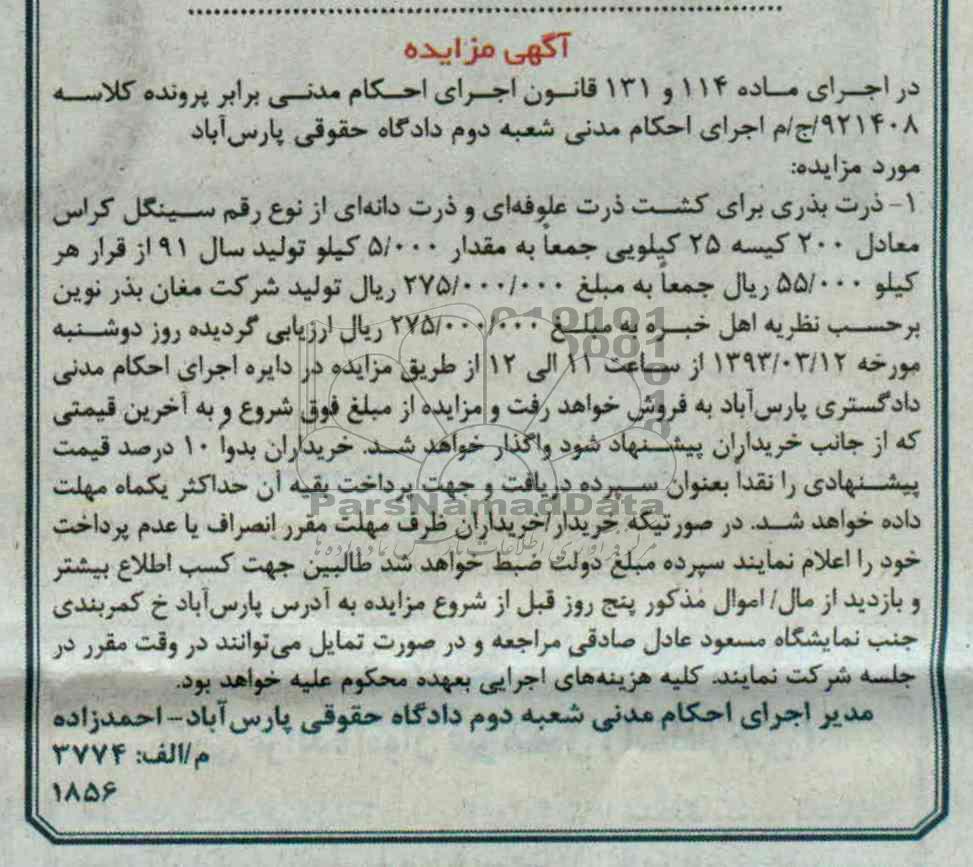 آگهی مزایده
در اجرای ماده ۱۱۴ و ۱۳۱ قانون اجرای احکام مدنی برابر پرونده کلاسه
۹۲۱۴۰۸/ج/م اجرای احکام مدنی شعبه دوم دادگاه حقوقی پارس‌آباد
مورد مزایده:
۱- ذرت بذری برای کشت ذرت علوفه‌ای و ذرت دانه‌ای از نوع رقم سینگل کراس
معادل ۲۰۰ کیسه ۲۵ کیلویی جمعاً به مقدار ۵/۰۰۰ کیلو تولید سال ۹۱ از قرار هر
کیلو ۵۵/۰۰۰ ریال جمعاً به مبلغ ۲۷۵/۰۰۰/۰۰۰ ریال تولید شرکت مغان بذر نوین
برحسب نظریه اهل خبره به مبلغ ۲۷۵/۰۰۰/۰۰۰ ریال ارزیابی گردیده روز دوشنبه
مورخه ۱۳۹۳/۰۳/۱۲ از ساعت ۱۱ الی ۱۲ از طریق مزایده در دایره اجرای احکام مدنی
دادگستری پارس‌آباد به فروش خواهد رفت و مزایده از مبلغ فوق شروع و به آخرین قیمتی
که از جانب خریداران پیشنهاد شود واگذار خواهد شد. خریداران بدواً ۱۰ درصد قیمت
پیشنهادی را نقداً بعنوان سپرده دریافت و جهت پرداخت بقیه آن حداکثر یکماه مهلت
ParsNamadData
داده خواهد شد. در صورتیکه خریدار/خریداران ظرف مهلت مقرر انصراف یا عدم پرداخت
خود را اعلام نمایند سپرده مبلغ دولت ضبط خواهد شد طالبین جهت کسب اطلاع بیشتر
و بازدید از مال/ اموال مذکور پنج روز قبل از شروع مزایده به آدرس پارس‌آباد خ کمربندی
جنب نمایشگاه مسعود عادل صادقی مراجعه و در صورت تمایل می‌توانند در وقت مقرر در
جلسه شرکت نمایند. کلیه هزینه‌های اجرایی بعهده محکوم علیه خواهد بود.
مدیر اجرای احکام مدنی شعبه دوم دادگاه حقوقی پارس‌آباد- احمدزاده
م/الف: ۳۷۷۴
۱۸۵۶